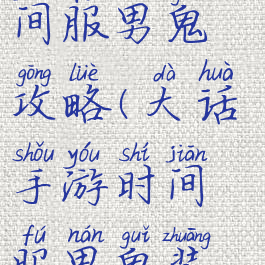 间服男鬼
gōng lüè dà huà
攻略(大话
shǒu yóu shí jiān
手游时间
fú nán guǐ zhuāng
服男鬼装